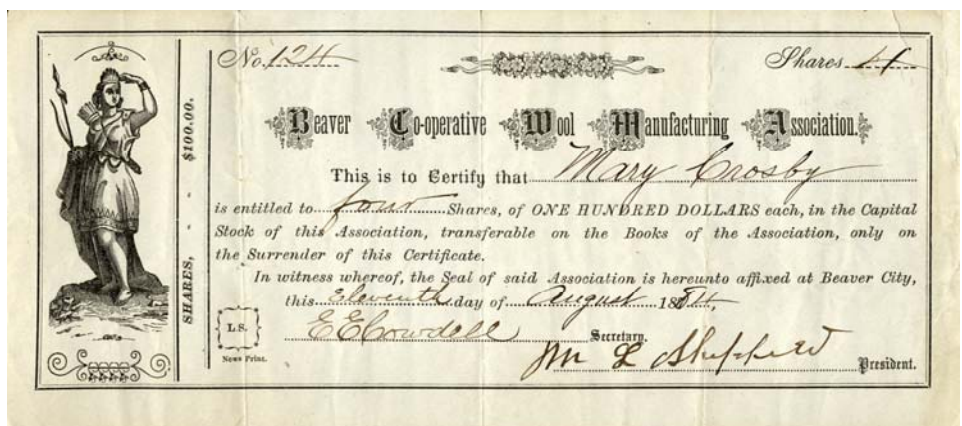 No. 124
Shares 4
SHARES, - - $100.00.
Beaver Co-operative Wool Manufacturing Association.
This is to Certify that Mary Crosby
is entitled to four Shares, of ONE HUNDRED DOLLARS each, in the Capital
Stock of this Association, transferable on the Books of the Association, only on
the Surrender of this Certificate.
In witness whereof, the Seal of said Association is hereunto affixed at Beaver City,
this Eleventh day of August 1884,
L.S.
E E Cowdell Secretary.
News Print.
M L Shepherd President.